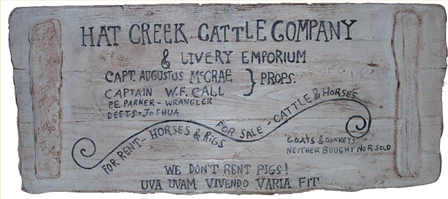 HAT CREEK CATTLE COMPANY
& LIVERY EMPORIUM
CAPT. AUGUSTUS McCRAE
CAPTAIN W.F. CALL
} PROPS.
P.E. PARKER - WRANGLER
DEETS - JOSHUA
FOR RENT - HORSES & RIGS
FOR SALE - CATTLE & HORSES
GOATS & DONKEYS
NEITHER BOUGHT NOR SOLD
WE DON'T RENT PIGS!
UVA UVAM VIVENDO VARIA FIT